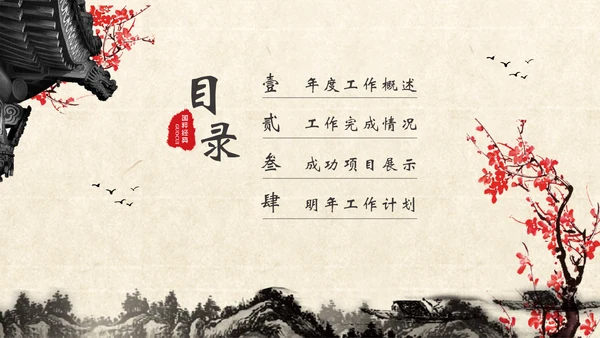 目录
国粹经典
GUOCUI
壹 年度工作概述
贰 工作完成情况
叁 成功项目展示
肆 明年工作计划